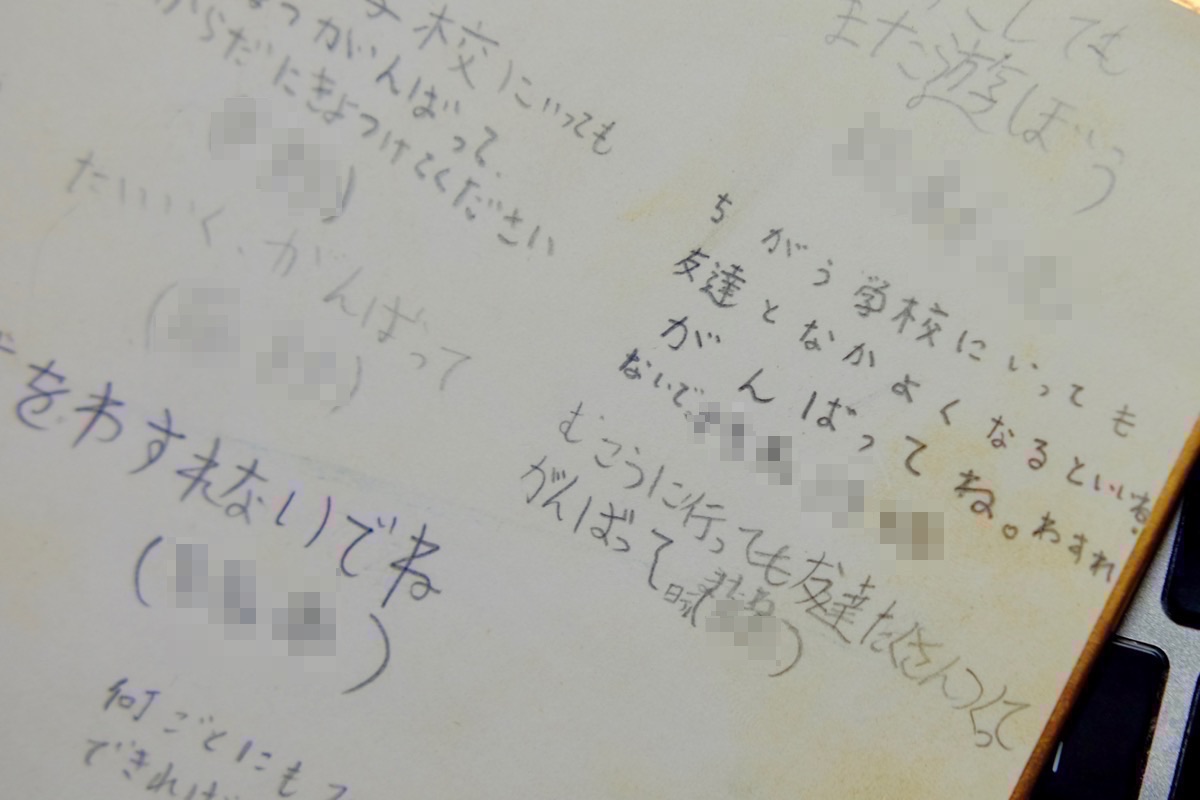 校にいっても
がんばって、
からだにきよつけてください
たいいく、がんばって
をわすれないでね
何ごとにも
できれば
こしても
また遊ぼう
ちがう学校にいっても
友達となかよくなるといいね。
がんばってね。わすれ
ないで。
むこうに行っても友達たくさんつくって
がんばって。